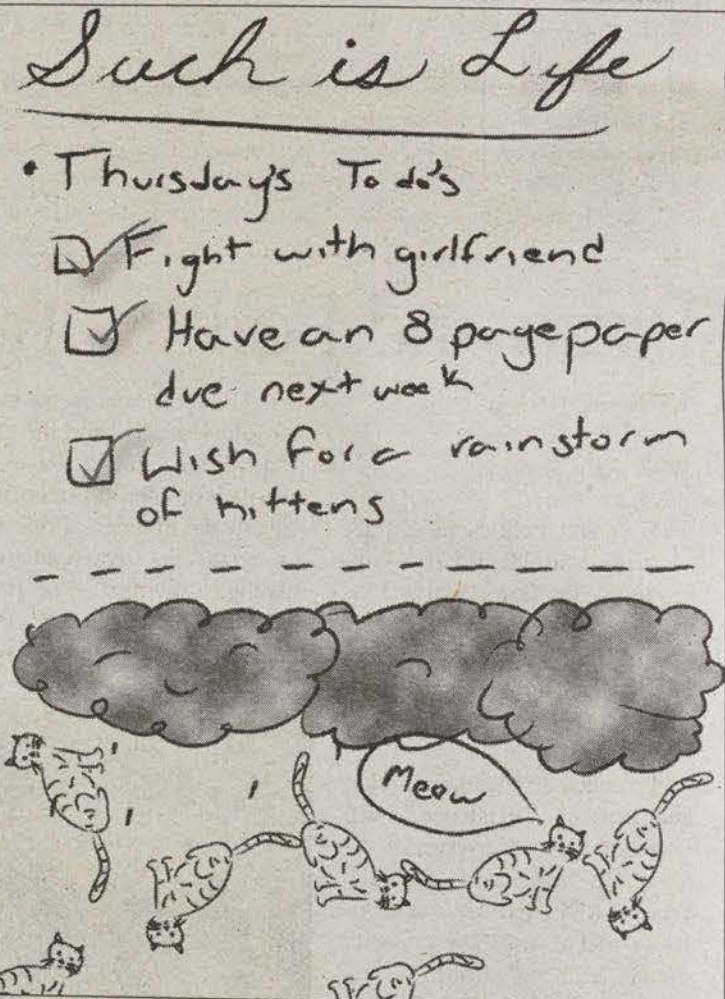 Such is Life
• Thursday's To do's
Fight with girlfriend
Have an 8 page paper
due next week
Wish for a rainstorm
of kittens
Meow